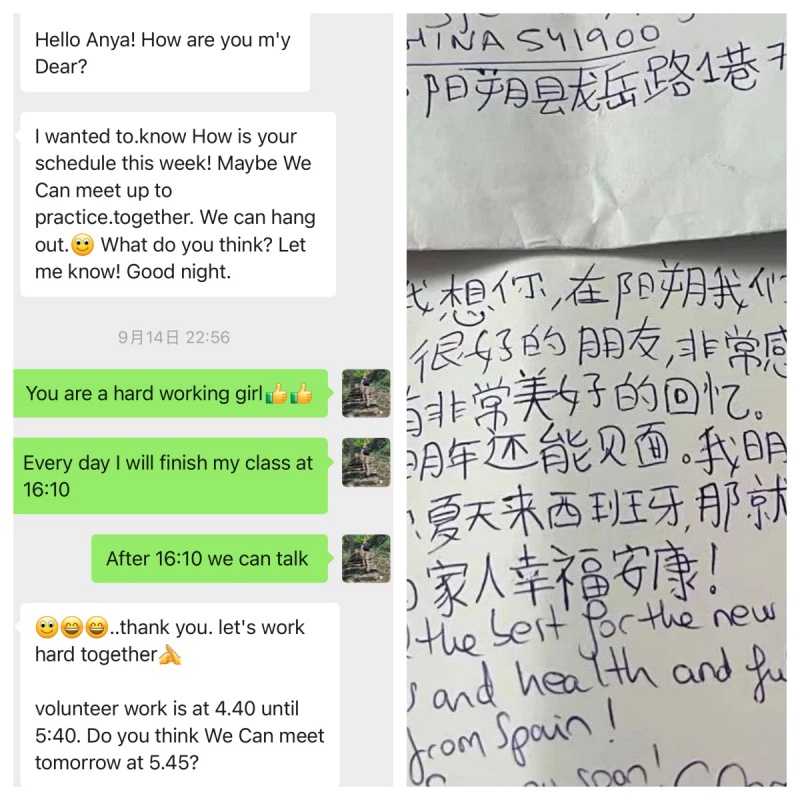 Hello Anya! How are you m'y
Dear?
I wanted to.know How is your
schedule this week! Maybe We
Can meet up to
practice.together. We can hang
out.🙂 What do you think? Let
me know! Good night.
9月14日 22:56
You are a hard working girl👍👍
Every day I will finish my class at
16:10
After 16:10 we can talk
🙂😄😄..thank you. let's work
hard together🙏
volunteer work is at 4.40 until
5:40. Do you think We Can meet
tomorrow at 5.45?
CHINA 541900
阳朔县龙岳路1巷7
我想你,在阳朔我们
很好的朋友,非常感
有非常美好的回忆。
明年还能见面。我明
夏天来西班牙,那就
家人幸福安康!
the best for the new
and health and fu
from Spain!